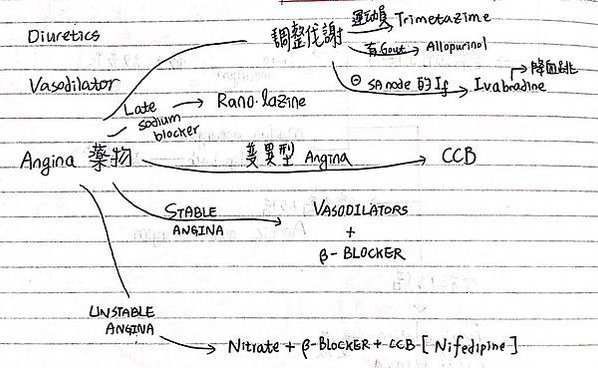 Diuretics
Vasodilator
調整代謝
運動員 Trimetazime
有Gout Allopurinol
⊖ SA node 的 If Ivabradine
降血跳
Late
sodium
blocker
Ranolazine
Angina 藥物
變異型 Angina
CCB
STABLE
ANGINA
VASODILATORS
+
β-BLOCKER
UNSTABLE
ANGINA
Nitrate + β-BLOCKER + CCB [Nifedipine]